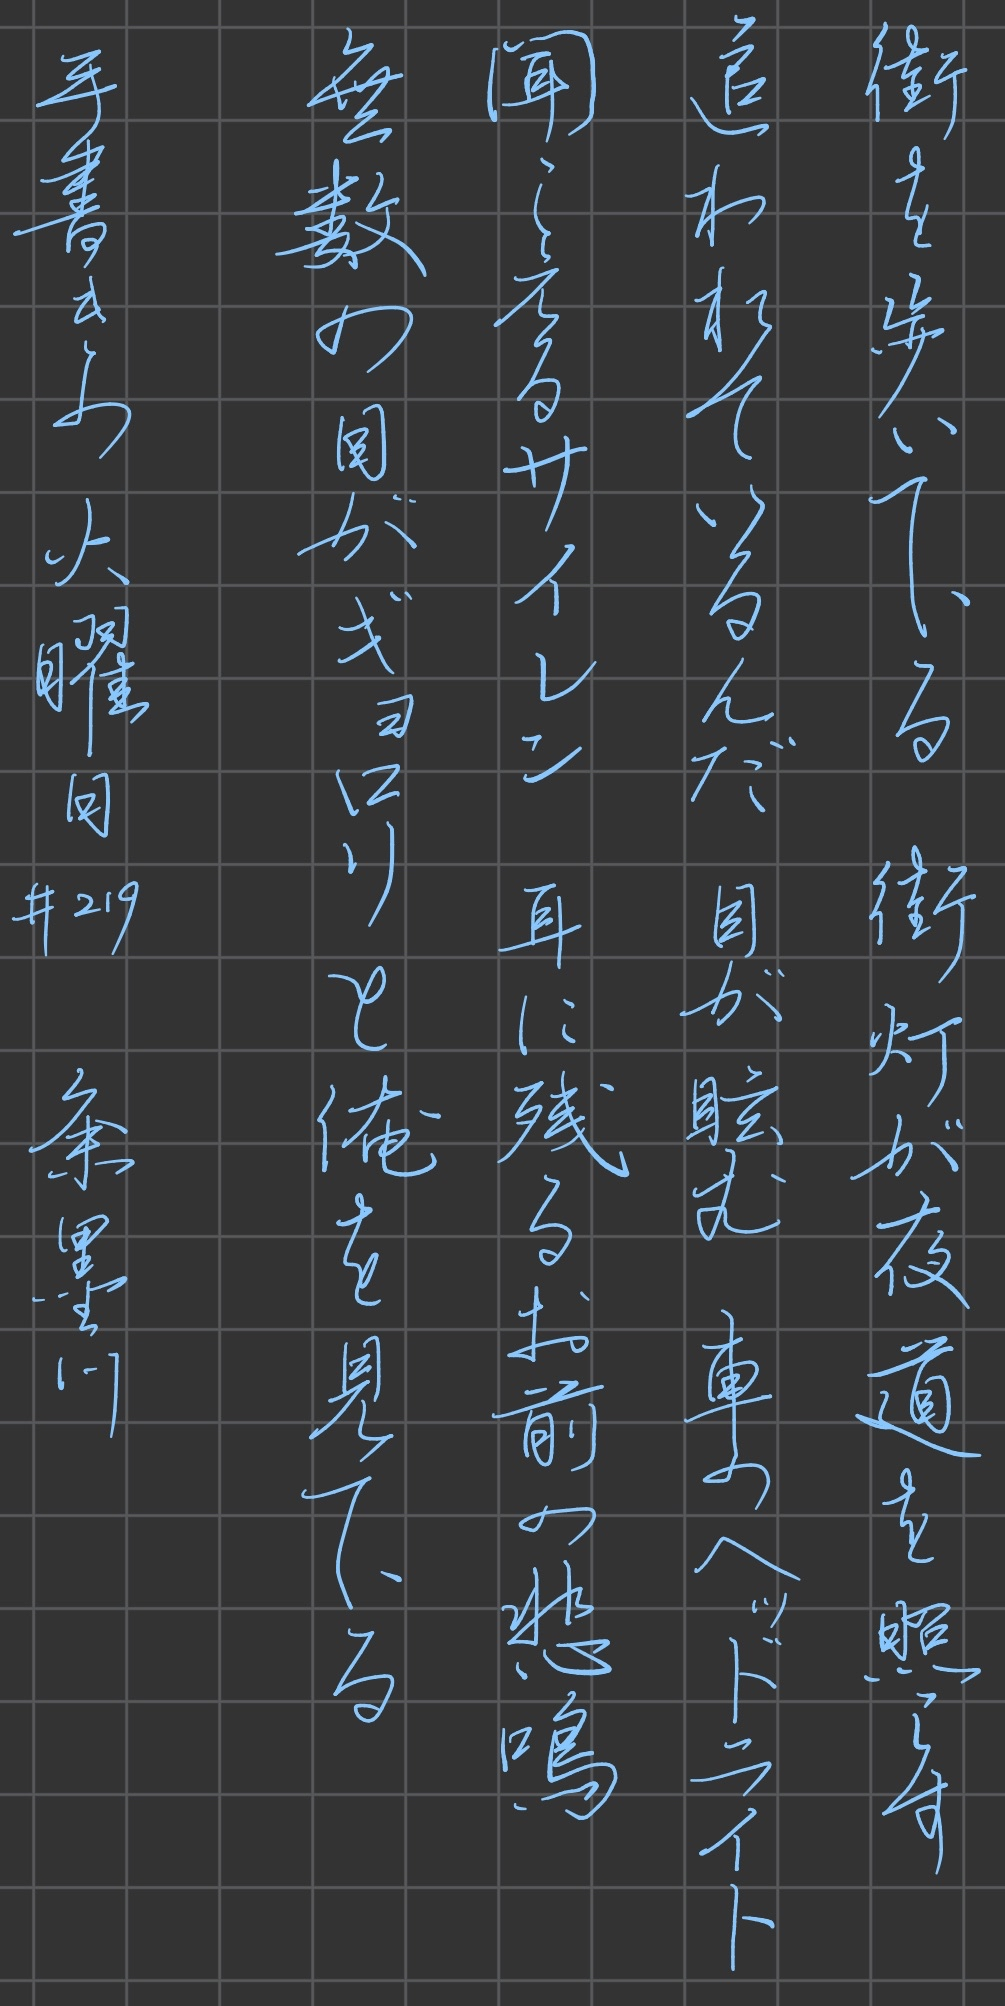 街を歩いている 街灯が夜道を照らす
追われているんだ 目が眩む 車のヘッドライト
聞こえるサイレン 耳に残るお前の悲鳴
無数の目がギョロリと俺を見ている
手書きの火曜日 #219 条墨川